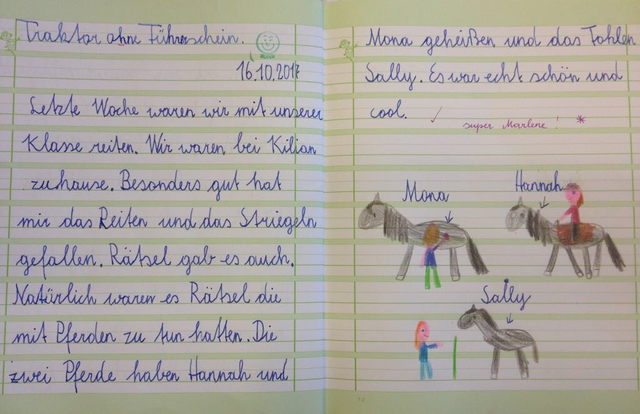 Traktor ohne Führerschein.
16.10.2017
Letzte Woche waren wir mit unserer
Klasse reiten. Wir waren bei Kilian
zuhause. Besonders gut hat
mir das Reiten und das Striegeln
gefallen. Rätsel gab es auch.
Natürlich waren es Rätsel die
mit Pferden zu tun hatten. Die
zwei Pferde haben Hannah und
Mona geheißen und das Fohlen
Sally. Es war echt schön und
cool.
super Marlene!
Mona
Hannah
Sally